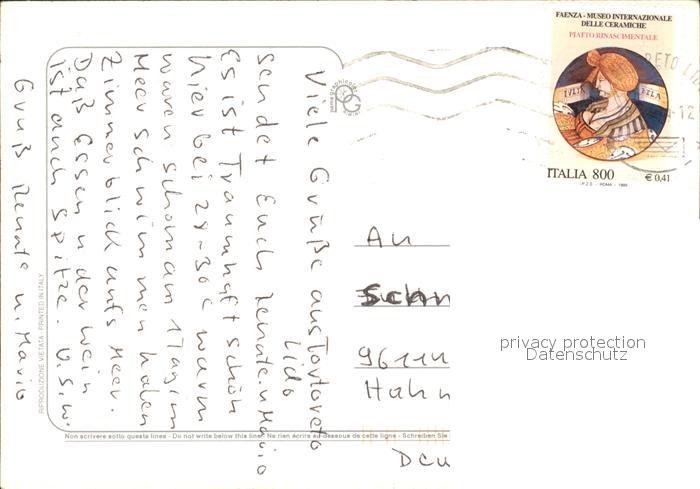 Viele Grüße aus Portoreto
Lido
sendet Euch Renate u. Mario
Es ist Traumhaft schön
hier bei 28-30 C warm
waren schon am 1 Tag im
Meer schwimmen haben
Zimmerblick aufs Meer.
Daß Essen u der Wein
ist auch Spitze. U.S.W.
Gruß Renate u. Mario
RIPRODUZIONE VIETATA - PRINTED IN ITALY
Non scrivere sotto questa linea - Do not write below this line - Ne rien écrire au-dessous de cette ligne - Schreiben Sie
FAENZA - MUSEO INTERNAZIONALE
DELLE CERAMICHE
PIATTO RINASCIMENTALE
IULIA BELA
ITALIA 800
€ 0,41
I.P.Z.S. - ROMA - 1999
An
Schn
96114
Hahn
Deu
privacy protection
Datenschutz